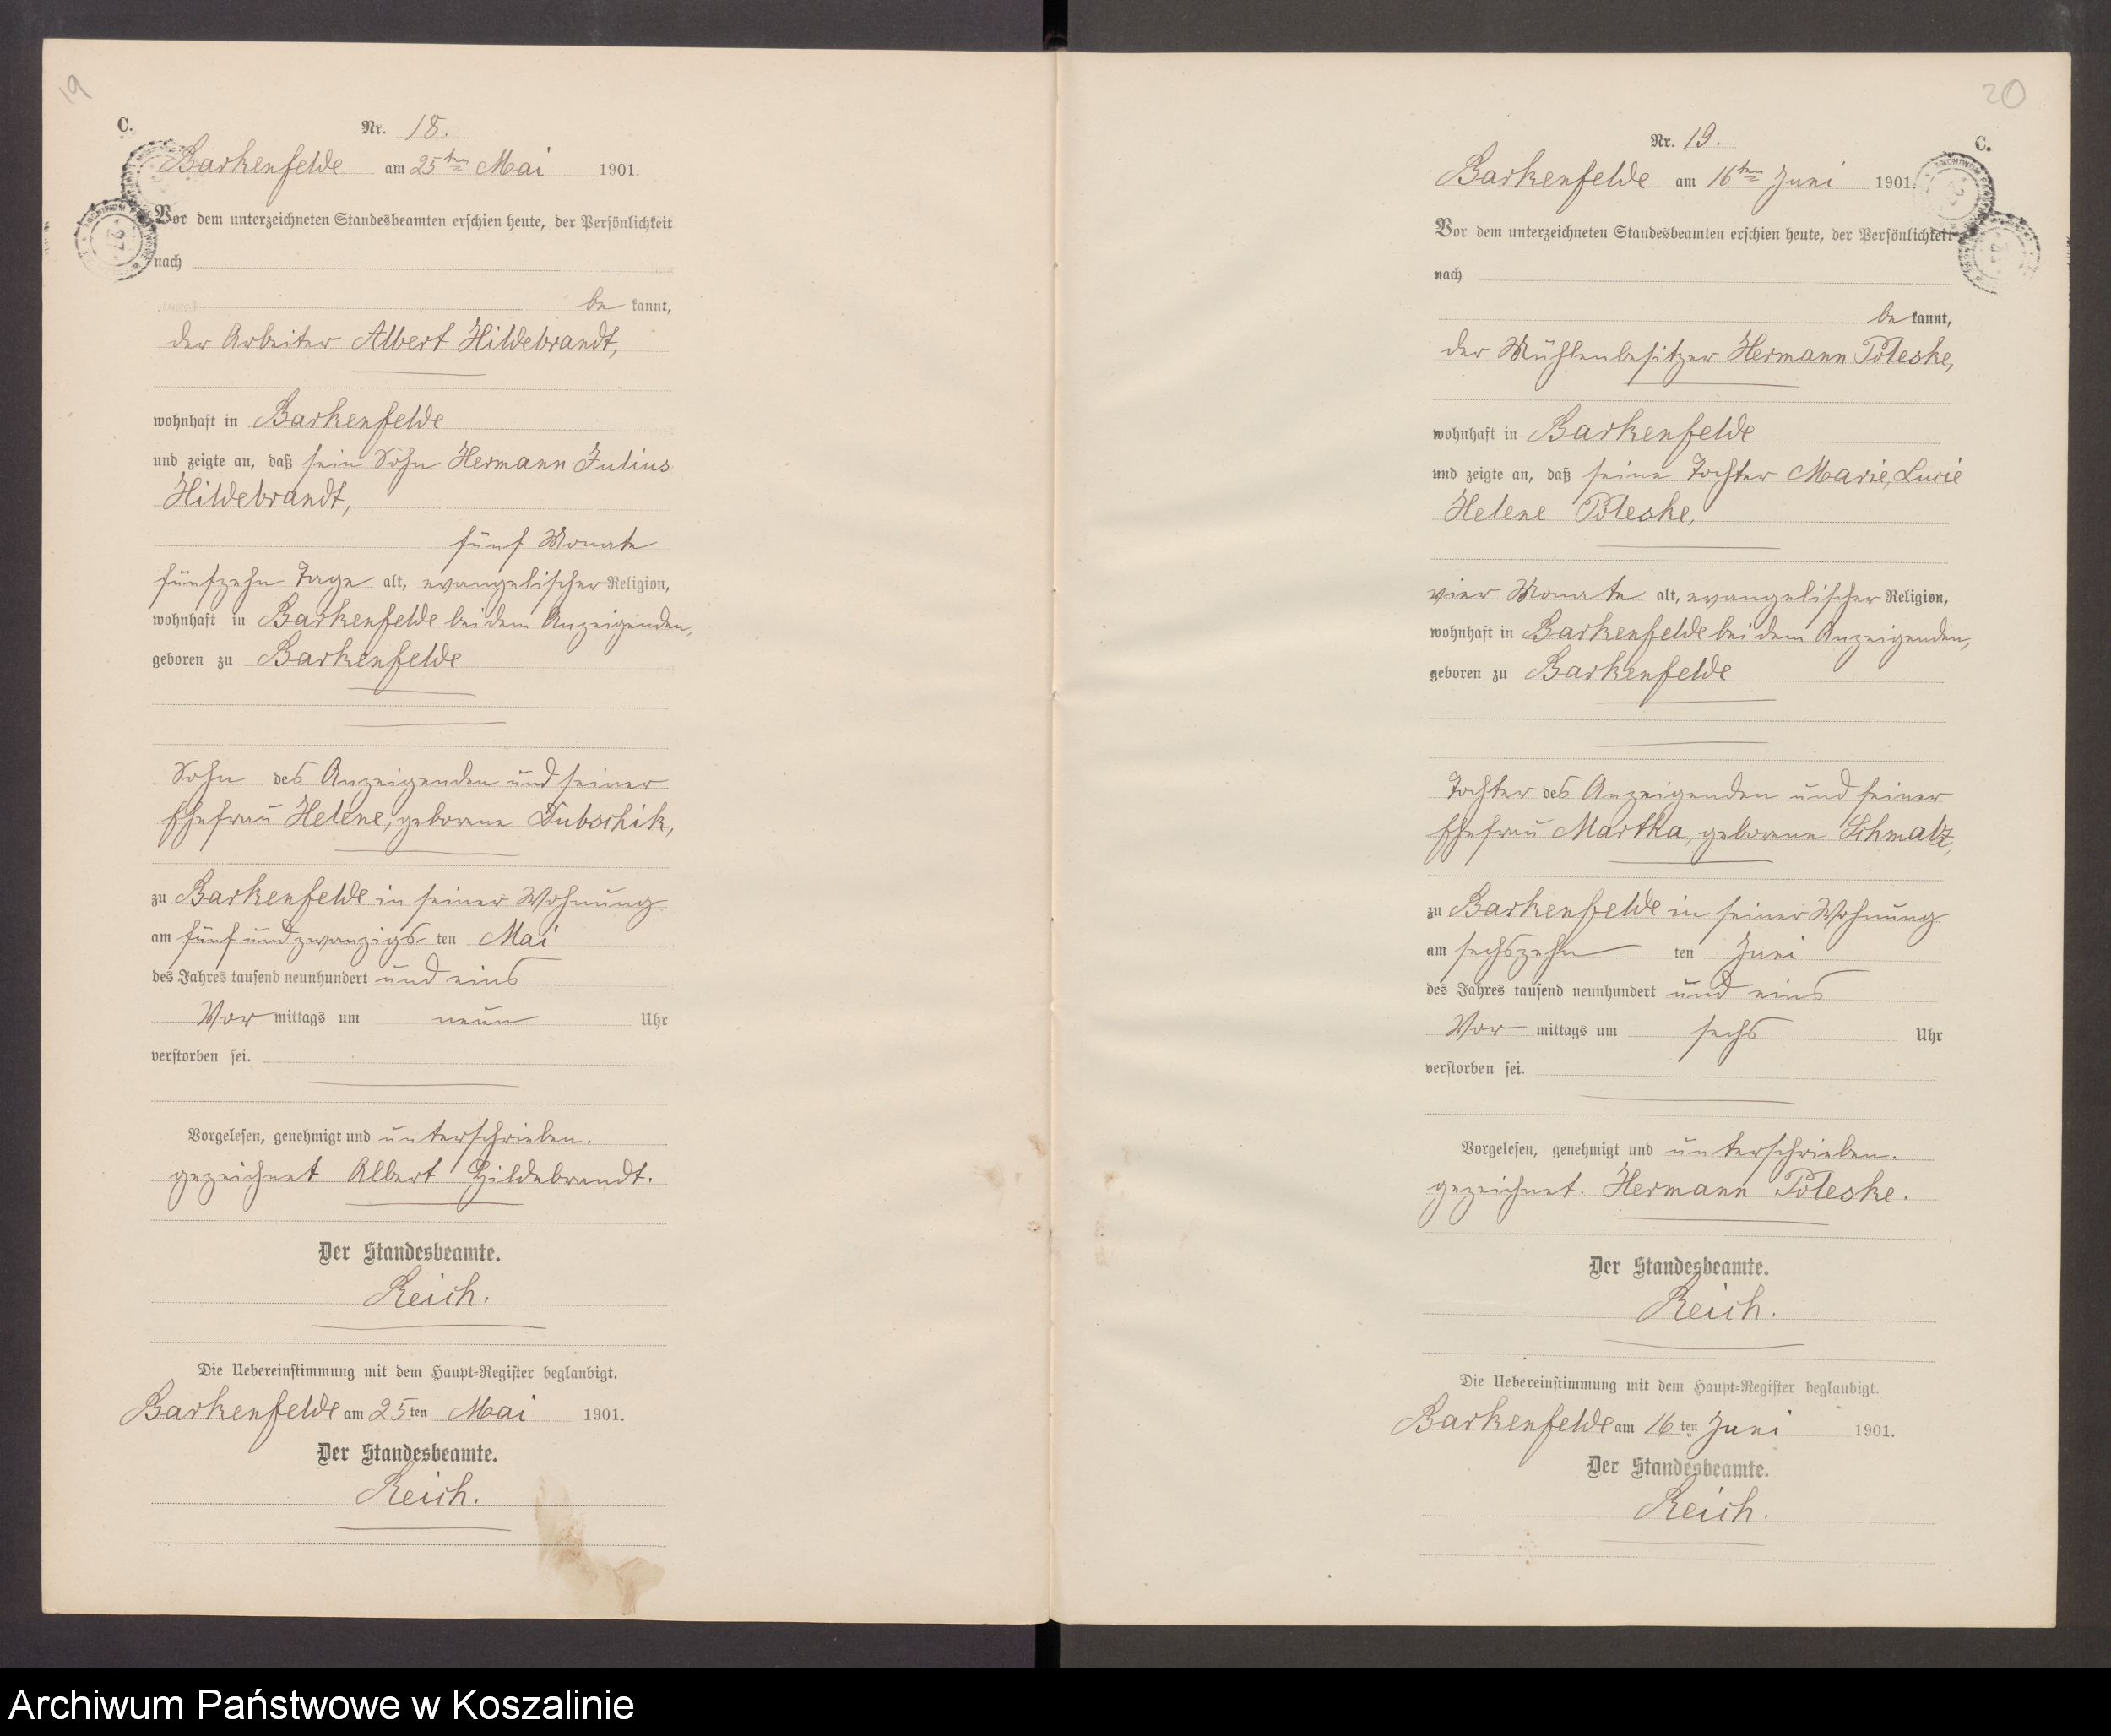 19
C.
Nr. 18.
Barkenfelde am 25ten Mai 1901.
Vor dem unterzeichneten Standesbeamten erschien heute, der Persönlichkeit
nach
be kannt,
der Arbeiter Albert Hildebrandt,
wohnhaft in Barkenfelde
und zeigte an, daß sein Sohn Hermann Julius
Hildebrandt,
fünf Monate
fünfzehn Tage alt, evangelischer Religion,
wohnhaft in Barkenfelde bei dem Anzeigenden,
geboren zu Barkenfelde
Sohn des Anzeigenden und seiner
Ehefrau Helene, geborene Dubschik,
zu Barkenfelde in seiner Wohnung
am fünf und zwanzigs ten Mai
des Jahres tausend neunhundert und eins
Vor mittags um neun Uhr
verstorben sei.
Vorgelesen, genehmigt und unterschrieben.
gezeichnet Albert Hildebrandt.
Der Standesbeamte.
Reich.
Die Uebereinstimmung mit dem Haupt-Register beglaubigt.
Barkenfelde am 25ten Mai 1901.
Der Standesbeamte.
Reich.
20
C.
Nr. 19.
Barkenfelde am 16ten Juni 1901.
Vor dem unterzeichneten Standesbeamten erschien heute, der Persönlichkeit
nach
be kannt,
der Mühlenbesitzer Hermann Poleske,
wohnhaft in Barkenfelde
und zeigte an, daß seine Tochter Marie, Lucie
Helene Poleske,
vier Monate alt, evangelischer Religion,
wohnhaft in Barkenfelde bei dem Anzeigenden,
geboren zu Barkenfelde
Tochter des Anzeigenden und seiner
Ehefrau Martha, geborene Schmalz,
zu Barkenfelde in seiner Wohnung
am sechszehn ten Juni
des Jahres tausend neunhundert und eins
Vor mittags um sechs Uhr
verstorben sei.
Vorgelesen, genehmigt und unterschrieben.
gezeichnet. Hermann Poleske.
Der Standesbeamte.
Reich.
Die Uebereinstimmung mit dem Haupt-Register beglaubigt.
Barkenfelde am 16ten Juni 1901.
Der Standesbeamte.
Reich.
Archiwum Państwowe w Koszalinie